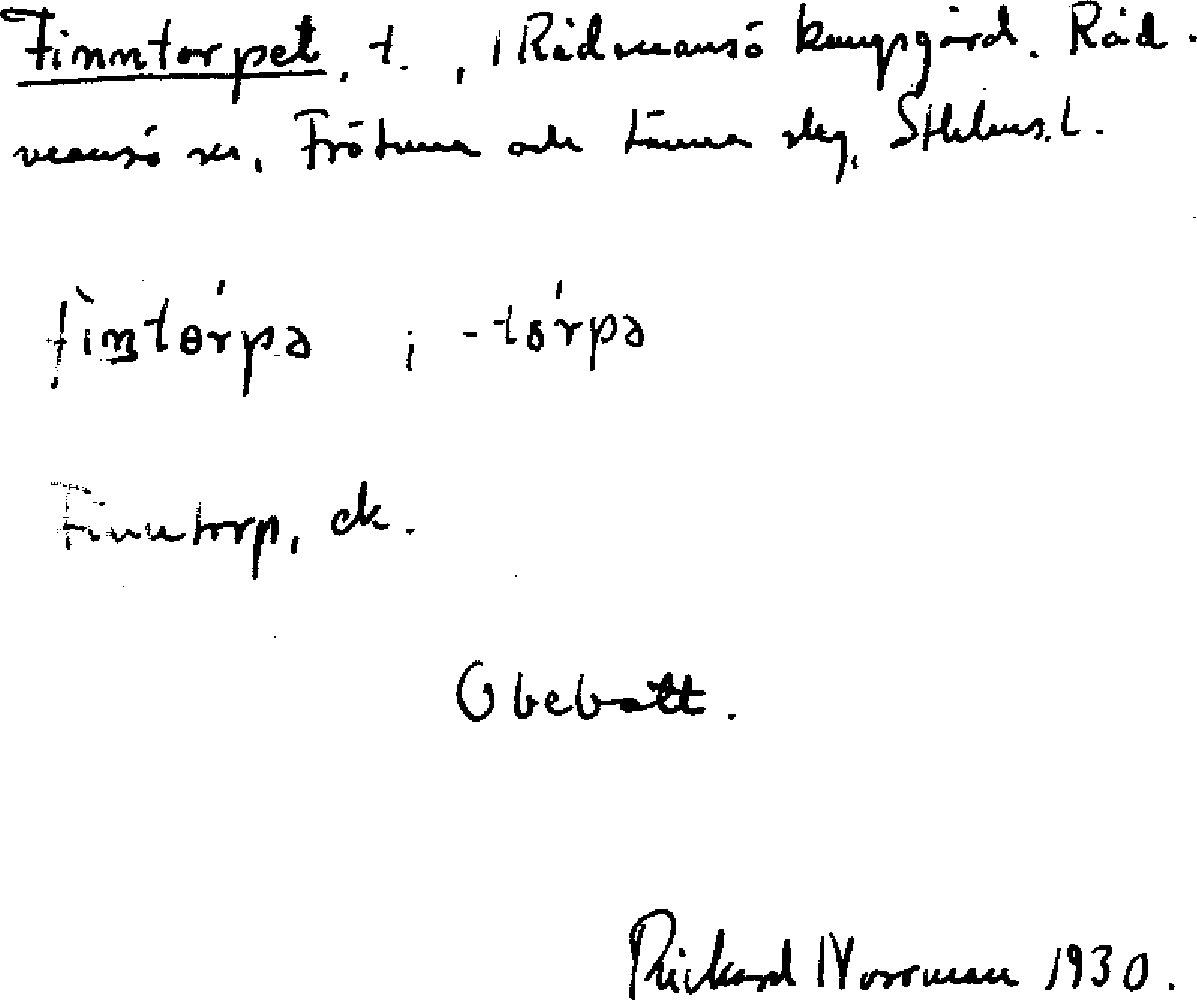 Finntorpet, t. , i Rådmansö kungsgård. Råd-
mansö sn, Frötuna och Länna slg, Sthlms. L.
fintörpə ; -törpə
Finntorp, ek.
Obebott.
Rickard Norrman 1930.